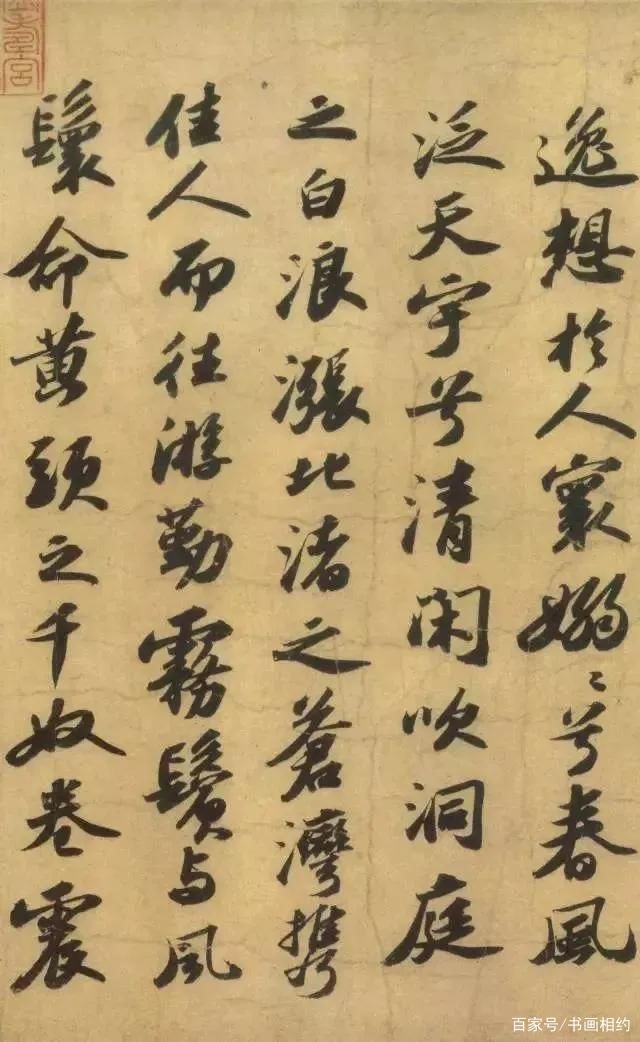 逸想於人寰嫋〻兮春風
泛天宇兮清閑吹洞庭
之白浪漲北渚之蒼灣携
佳人而往游勤霧鬢与風
鬟命黄頭之千奴卷震
百家号/书画相约